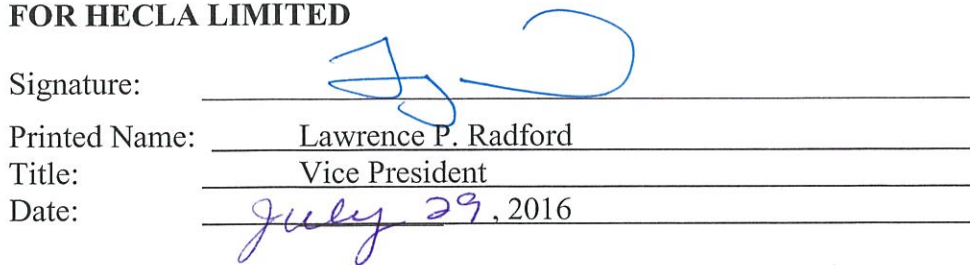 FOR HECLA LIMITED
Signature:
Printed Name: Lawrence P. Radford
Title: Vice President
Date: July 29, 2016